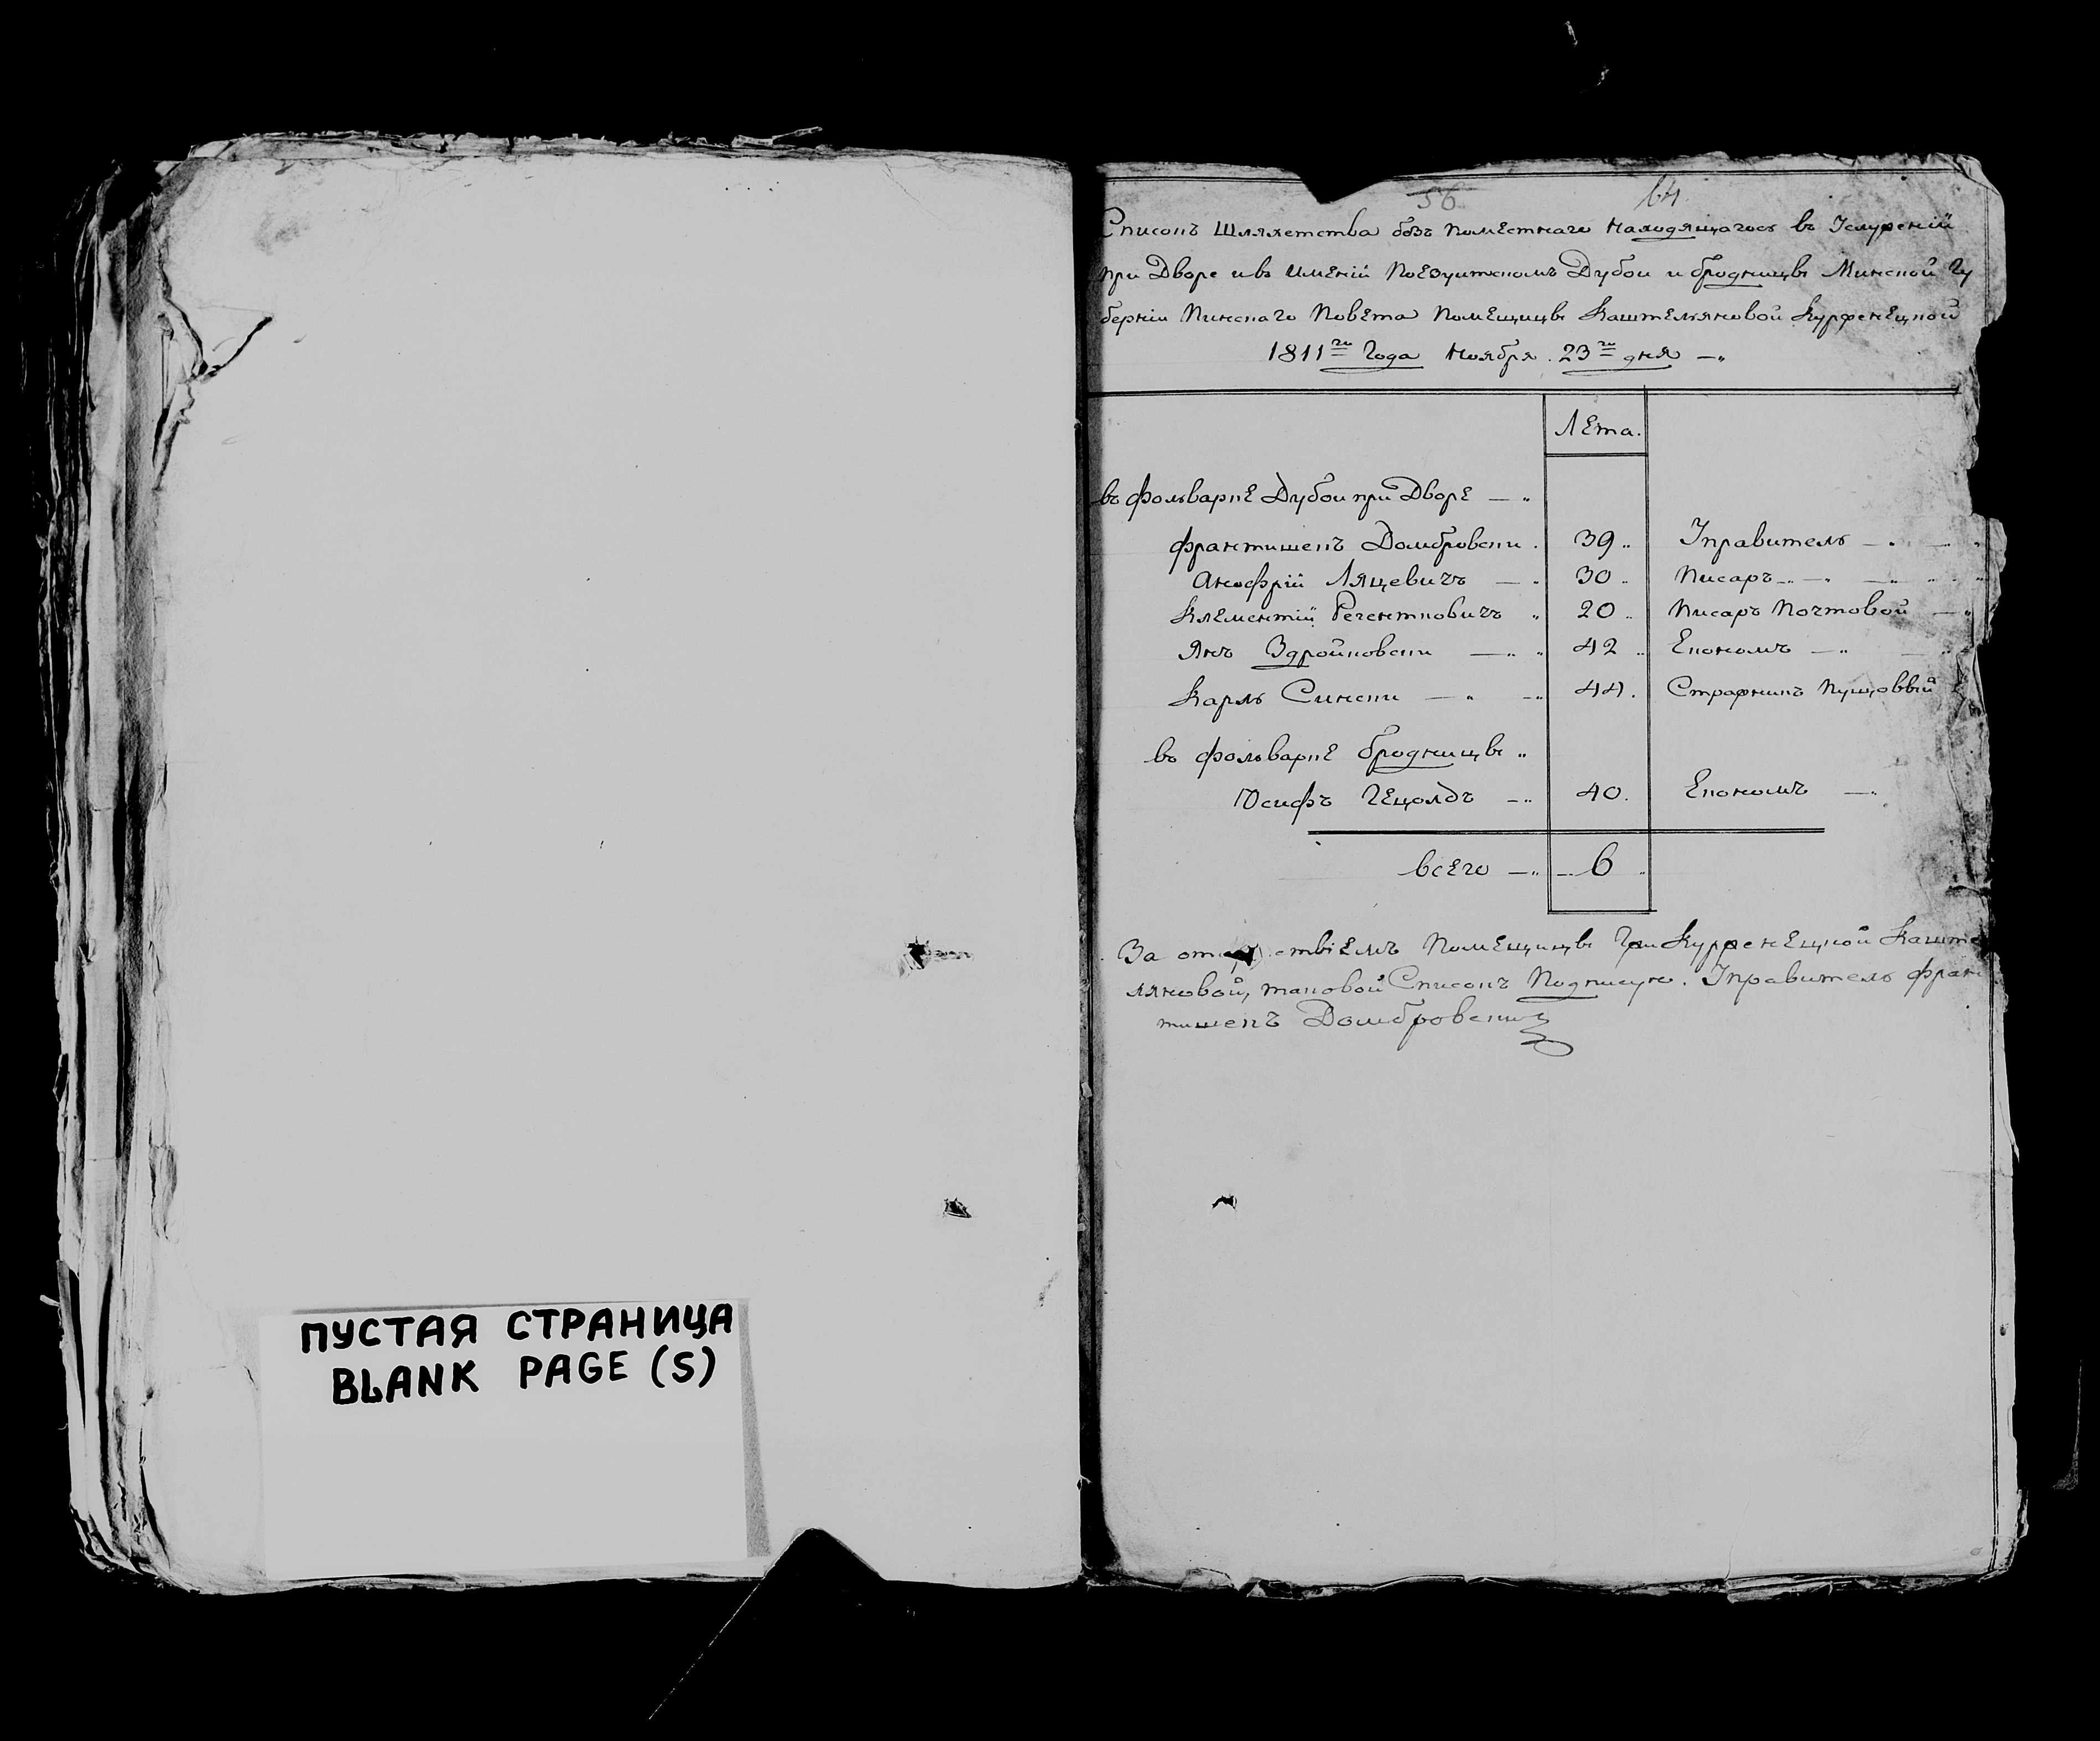 56 64
Списокъ Шляхетства безъ поместнаго находящагось въ Услуженїй
при Дворе ивъ именїй Поезуитскомъ Дубои и бродницѣ Минской Гу
бернїи Пинскаго Повета Помещицѣ Каштеляновой Курженецкой
1811го Года Ноября 23го дня
Лета.
въ фольварке Дубои при Дворе
франтишекъ Домбровски 39 Управитель
Анофрїй Ляцевичъ 30 Писаръ
Клементїй Регентковичъ 20 Писаръ Почтовой
Янъ Здройковски 42 Економъ
Карлъ Сински 44 Стражникъ Пущовый
въ фольварке бродницѣ
Юсифъ Гецолдъ 40 Економъ
всего 6
За ствїемъ Помещицѣ Курженецкой Каште
ляновой, таковой Списокъ Подписую. Управитель фран
тишекъ Домбровски
ПУСТАЯ СТРАНИЦА
BLANK PAGE (S)